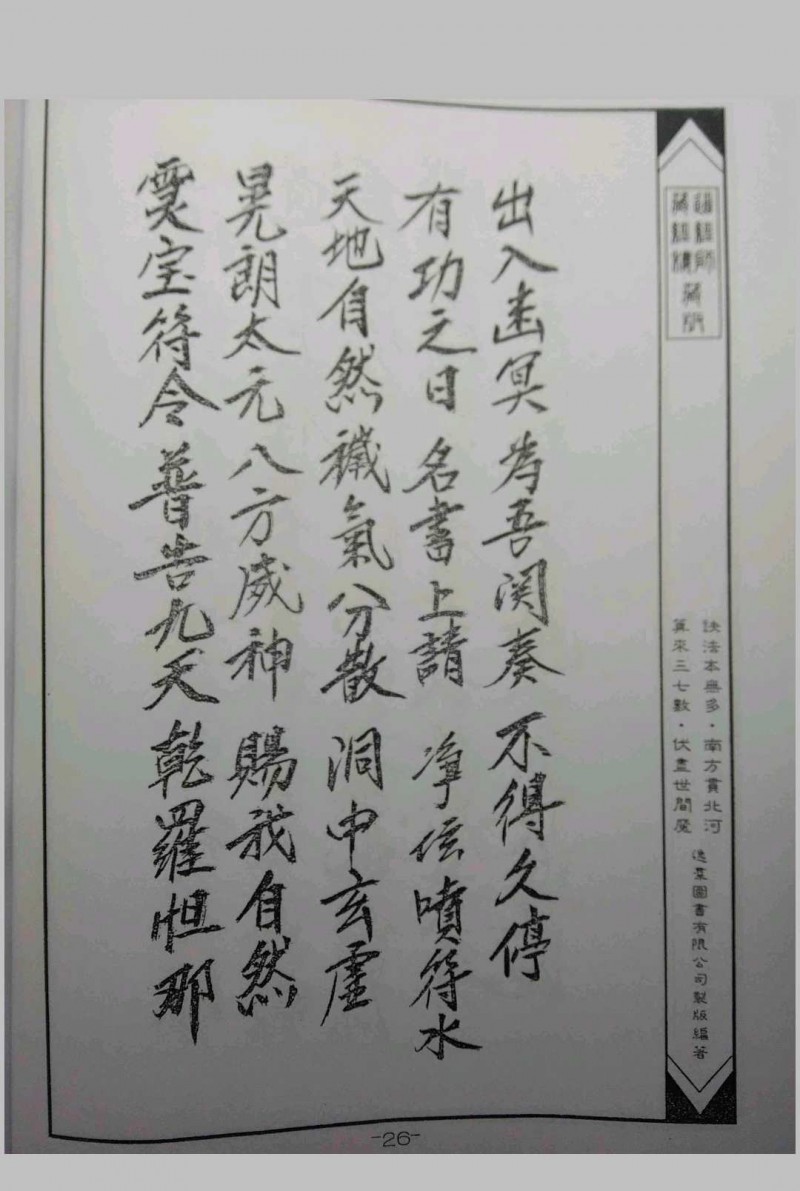 訣法本無多·南方貫北河
算來三七數·伏盡世間魔
逸羣圖書有限公司製版編著
出入幽冥 為吾関奏 不得久停
有功之日 名書上請 净坛噴符水
天地自然 穢氣分散 洞中玄虛
晃朗太元 八方威神 賜我自然
灵宝符令 普告九天 乾羅怛那
-26-